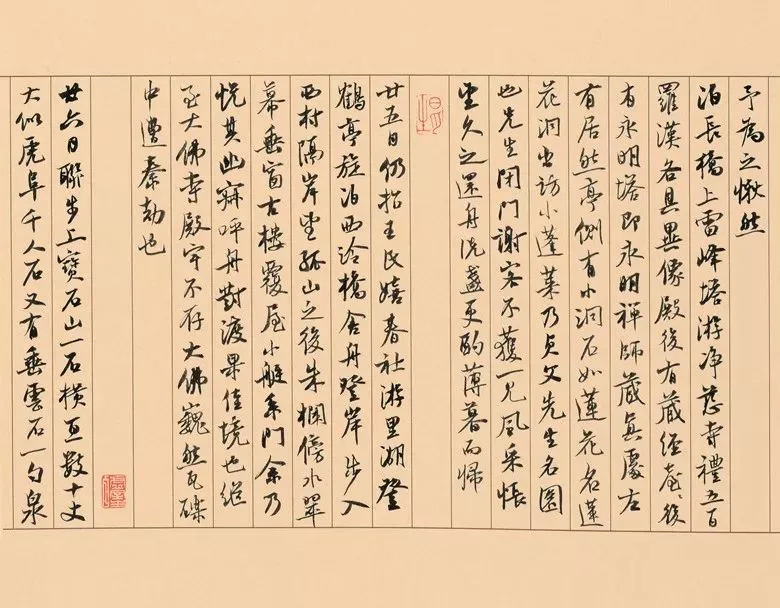 予為之愀然
泊長橋上雷峰塔游净慈寺禮五百
羅漢各具異像殿後有藏經臺臺後
有永明塔即永明禪師藏真處左
有居然亭側有小洞石如蓮花名蓮
花洞出訪小蓬萊乃貞父先生名園
也先生閉門謝客不獲一見風采悵
望久之還舟洗盞更酌薄暮而歸
廿五日仍招王氏嬉春社游里湖登
鶴亭旋泊西泠橋舍舟登岸步入
西村隔岸望孤山之後朱欄傍水翠
幕垂窗古樓覆屋小艇系門余乃
悦其幽寂呼舟對渡果佳境也继
至大佛寺殿宇不存大佛巍然瓦礫
中遭秦劫也
廿六日聯步上寶石山一石橫亘數十丈
大似虎阜千人石又有垂雲石一勺泉